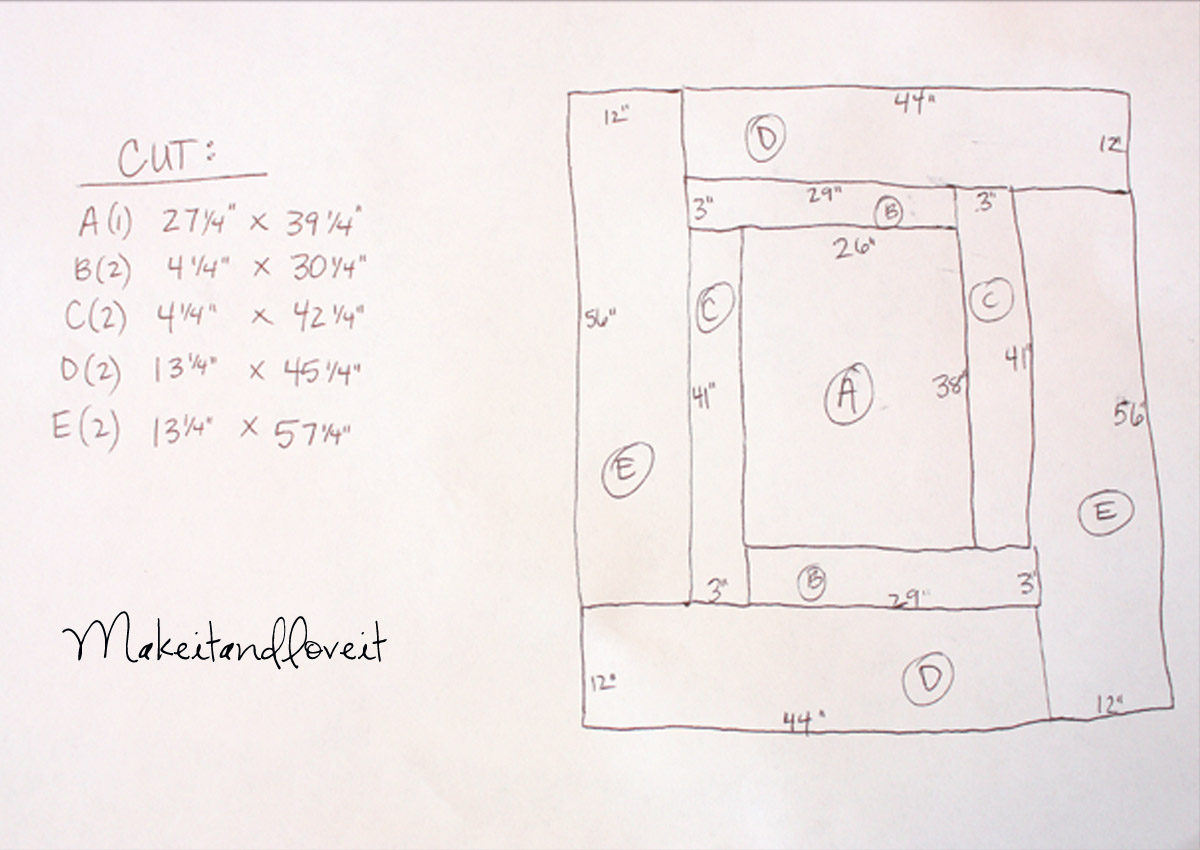 CUT:
A(1) 27 1/4" x 39 1/4"
B(2) 4 1/4" x 30 1/4"
C(2) 4 1/4" x 42 1/4"
D(2) 13 1/4" x 45 1/4"
E(2) 13 1/4" x 57 1/4"
Makeitandloveit
12" 44"
D 12"
3" 29" B 3"
26"
C C
56"
41" A 38" 41"
56"
E
E
3" B 29" 3"
12" D 12"
44"